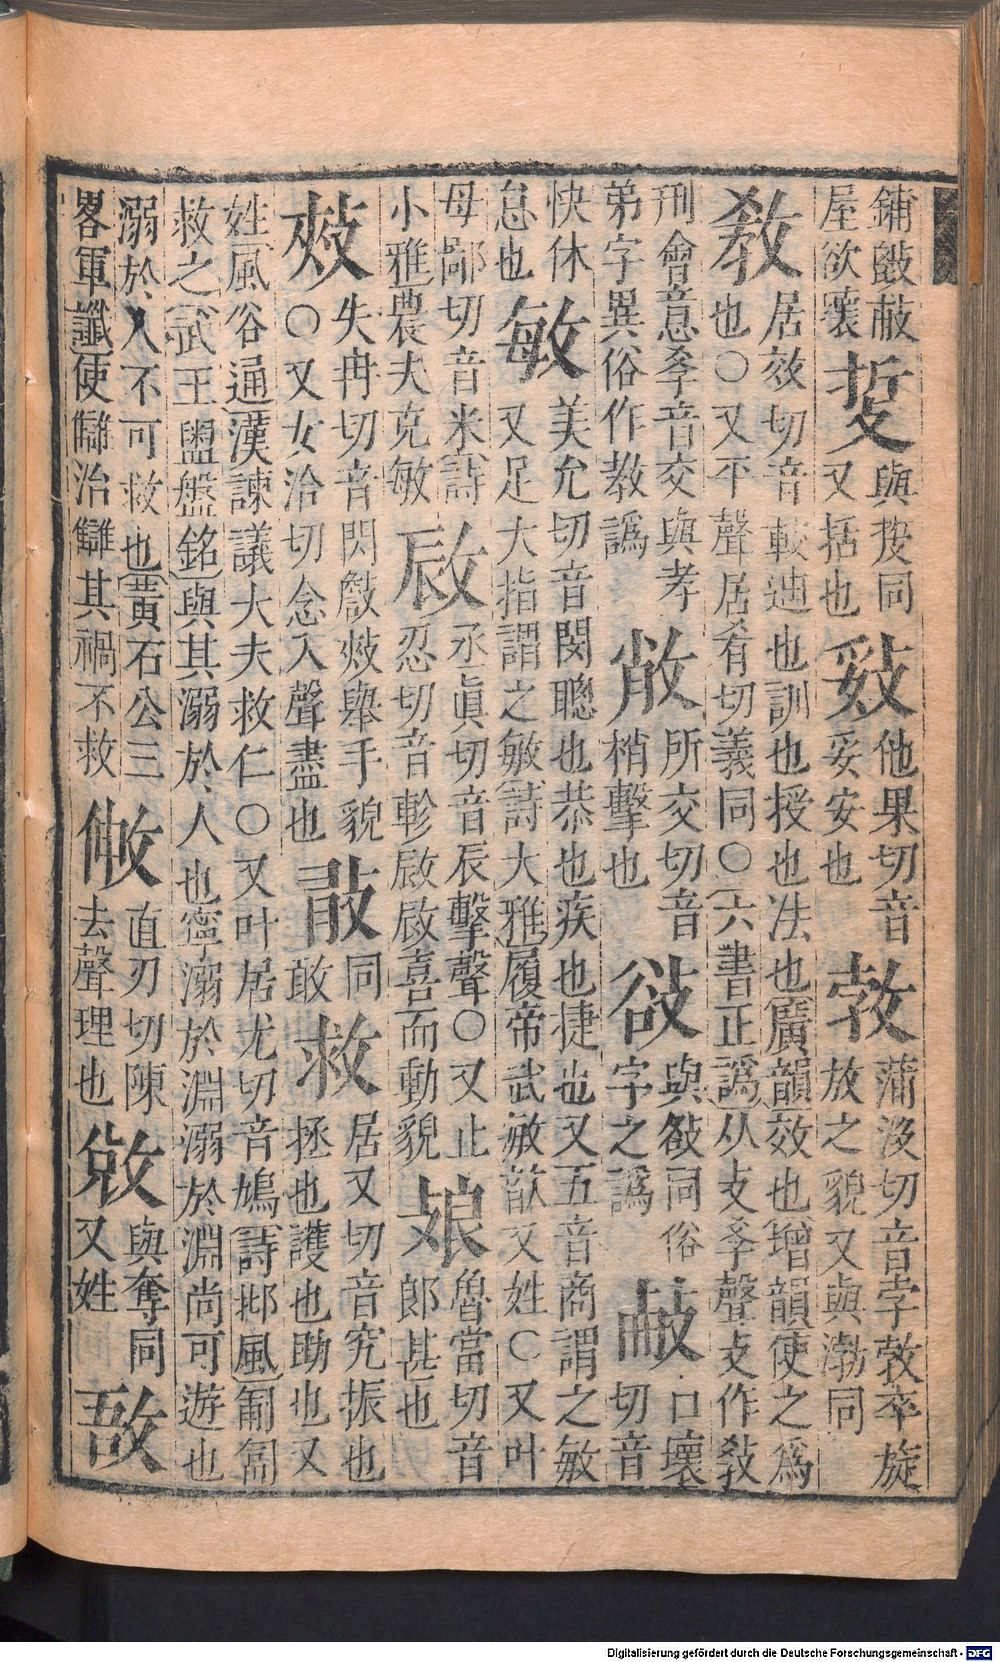 鋪皷敲
屋欲壤
㪇
與投同
又括也
㪐
他果切音
妥安也
㪍
蒲沒切音孛㪍卒旋
放之貌又與渤同
敎
居效切音較迪也訓也授也法也廣韻效也增韻使之為
也〇又平聲居肴切義同〇六書正譌从攴季聲攴作敎
刑會意季音交與孝
弟字異俗作教譌
㪢
所交切音
梢擊也
㪉
與敆同俗
字之譌
㪃
口壞
切音
快休
怠也
敏
美允切音閔聰也恭也疾也捷也又五音商謂之敏
又足大指謂之敏詩大雅履帝武敏歆又姓〇又叶
母鄙切音米詩
小雅農夫克敏
㪜
丞眞切音辰擊聲〇又止
忍切音軫㪜㪜喜而動貌
㪟
魯當切音
郎甚也
㪎
失冉切音閃㪎㪎舉手貌
〇又女洽切念入聲盡也
敢
同
敢
救
居又切音究振也
拯也護也助也又
姓風俗通漢諫議大夫救仁〇又叶居尤切音鳩詩邶風匍匐
救之武王盥盤銘與其溺於人也寧溺於淵溺於淵尚可遊也
溺於人不可救也黃石公三
畧軍讖使讎治讎其禍不救
敒
直刃切陳
去聲理也
敓
與奪同
又姓
敔
Digitalisierung gefördert durch die Deutsche Forschungsgemeinschaft - DFG